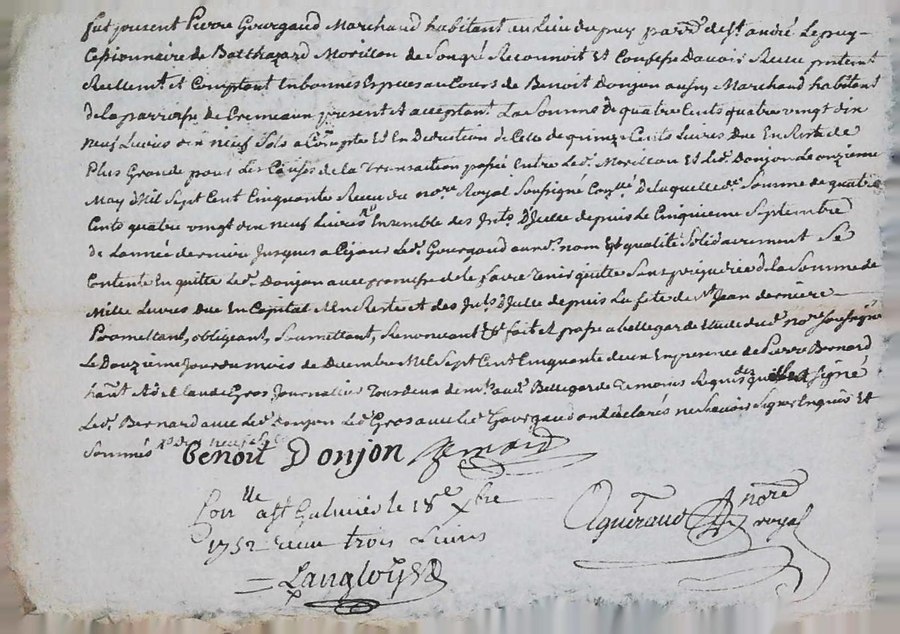 fut présent Pierre Gourgaud Marchand habitant au lieu du puy parr.e de St. andré Le puy
Cessionnaire de Balthazard Morillon de Reconnoit Et Confesse Davoir Receu presentemt
Reellemt. et Comptant En bonnes Especes au Cours de Benoit Donjon aussy Marchand habitant
de la parroisse de Cremeaux present et acceptant La Somme de quatre Cents quatre vingt dix
Neuf Livres dix neuf Sols a Compte Et En Deduction de Celle de quinze Cents Livres Due En Reste de
Plus Grande pour Les Causes de la Transaction passée Entre Led. Morillon Et led. Donjon Le onzieme
May Mil Sept Cent Cinquante Receu du nore. Royal Soussigné De laquelle de. Somme de quatre
Cents quatre vingt dix neuf Livres Ensemble des Ints. D'Icelle depuis Le Cinquieme Septembre
de Lannée derniere Jusques a Cejour Led. Gourgaud aud. nom Et qualité Solidairement Se
Contente En quitte Led. Donjon avec promesse de le faire tenir quitte Sans prejudice d la Somme de
Mille Livres Due En Capital Et des Ints. D'Icelle depuis La fete de St. Jean derniere
Promettant, obligeant, Soumettant, Renonceant fait et passé a bellegarde Etude dud. nore. soussigné
Le Douzieme Jour du mois de Decembre Mil Sept Cent Cinquante deux En presence de Pierre Bernard
hant. Claude Gros Journalier Tous deux de Bellegarde Temoins Requis signé
Led. Bernard avec Led. Donjon Led. Gros avec Led. Gourgaud ont declarés ne Scavoir Signer Enquis Et
Sommés
Benoit Donjon Bernard
Con.lle a St Galmier le 18e. Xbre
1752 Receu trois Livres
Langloys
nore royal